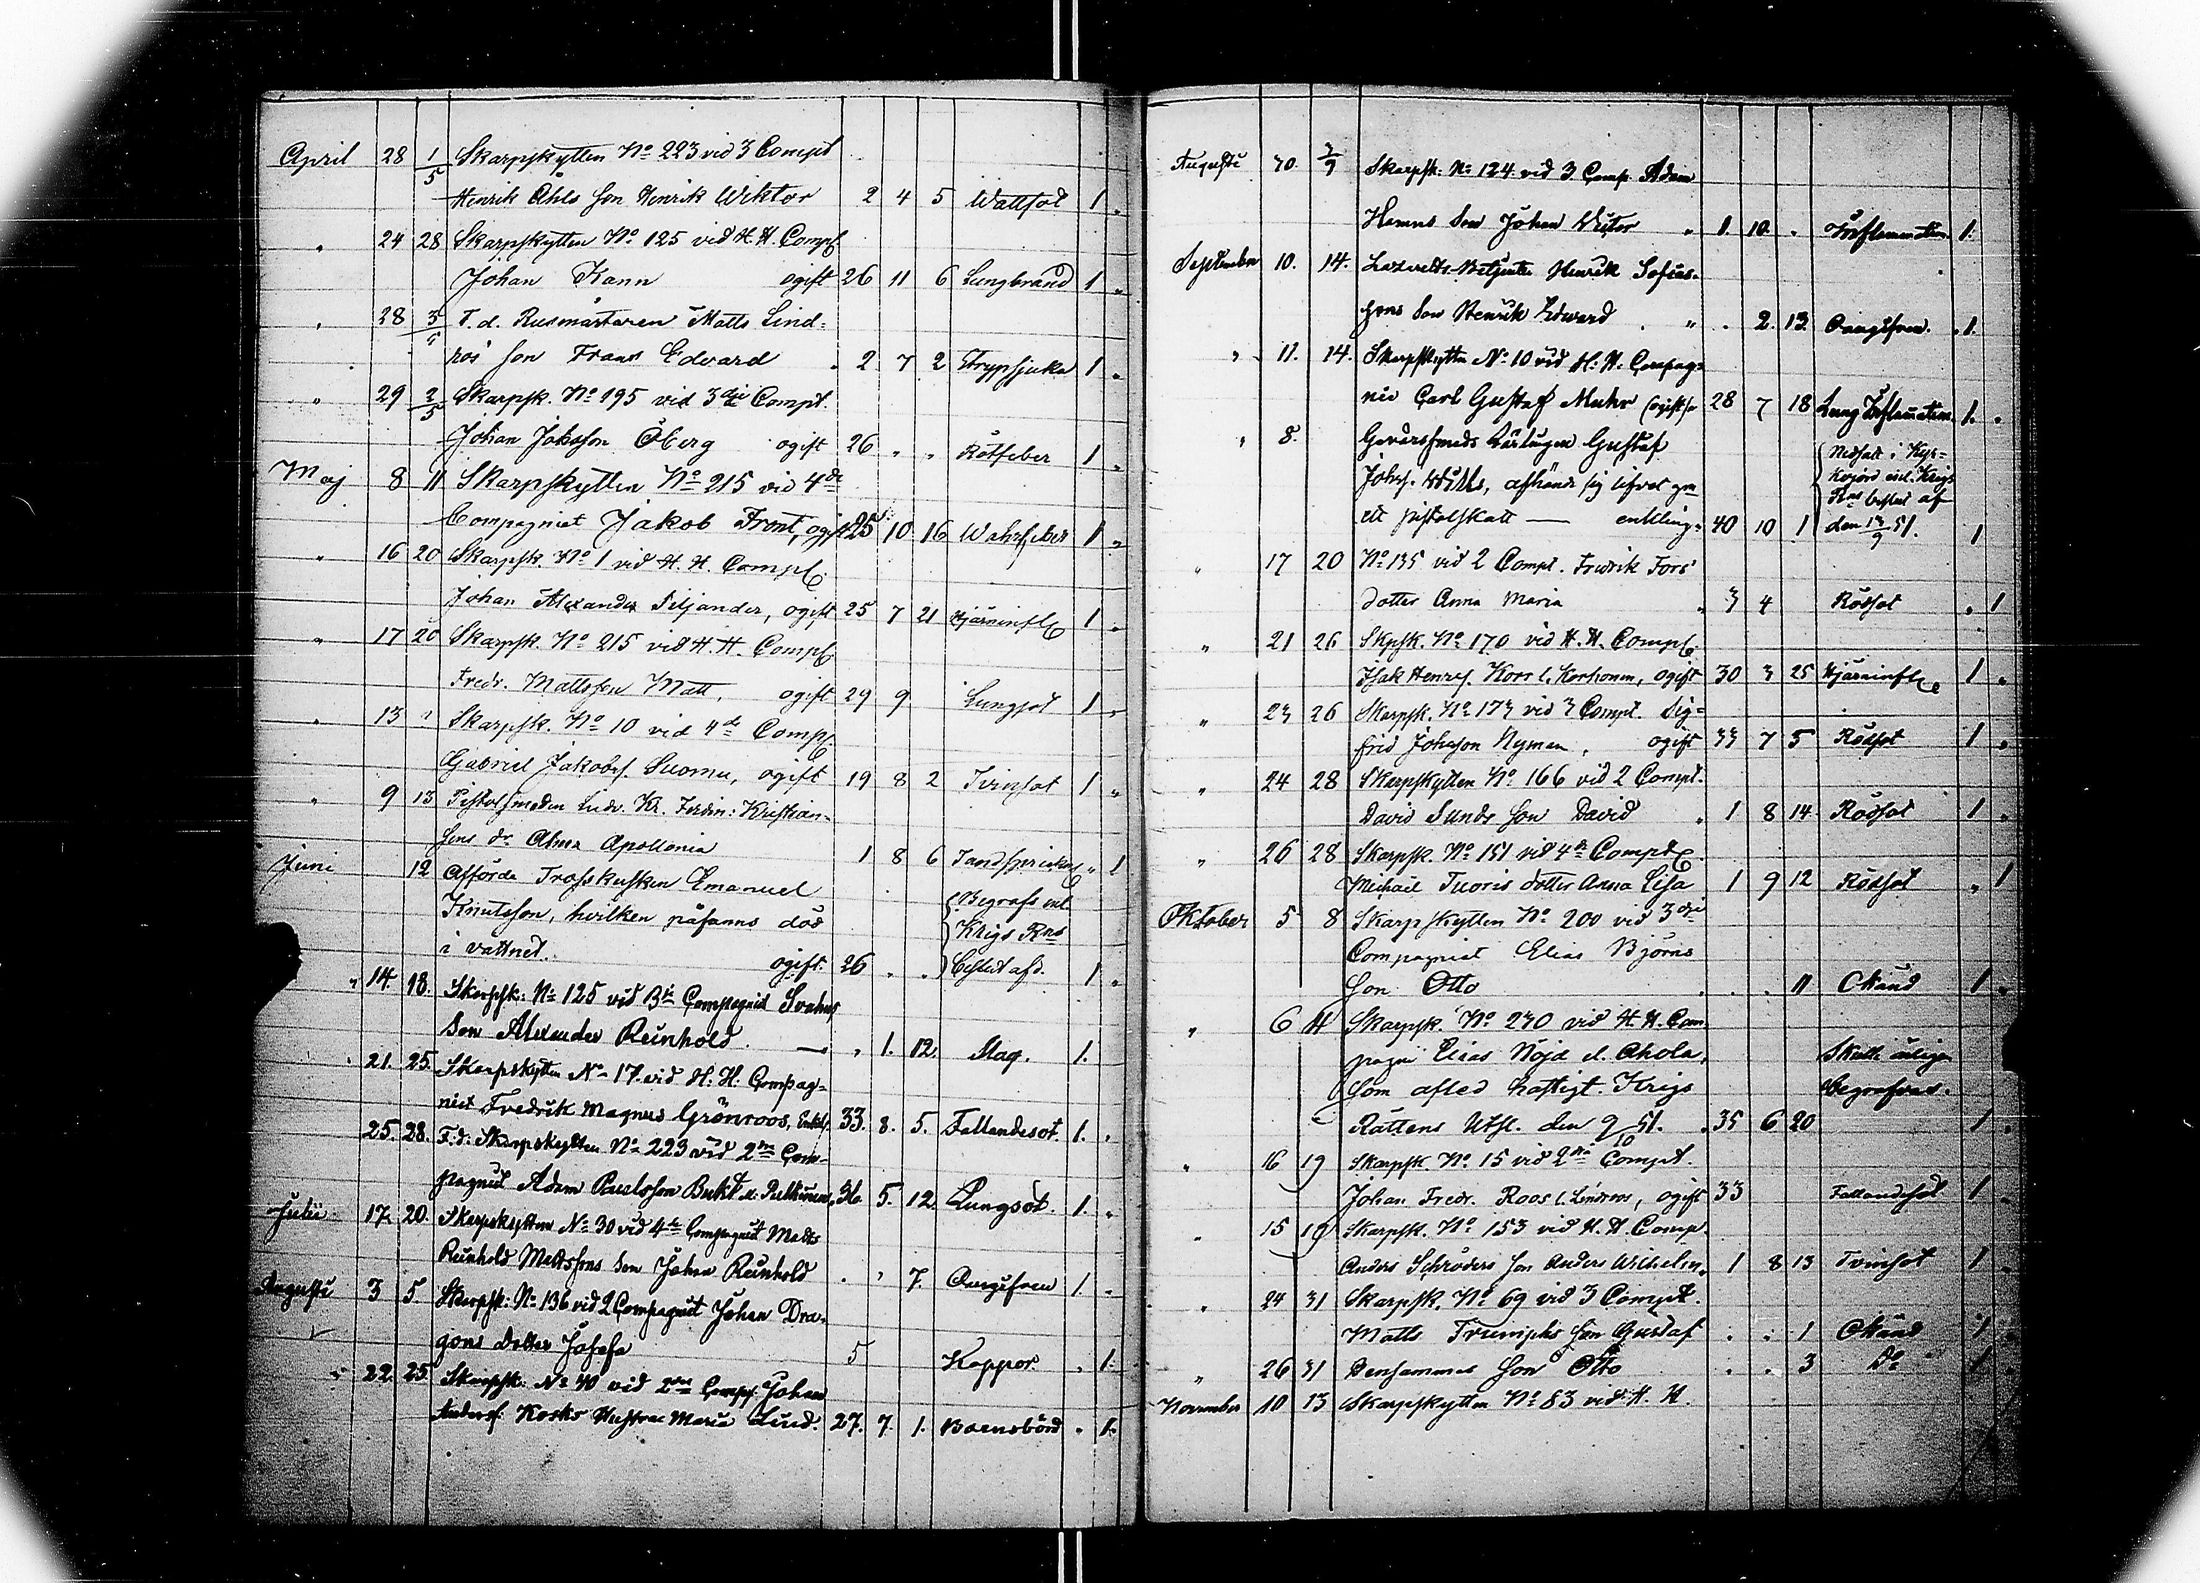 April 28 1/5 Skarpskytten No 223 vid 3 Compt
Henrik Åhls son Henrik Wiktor 2 4 5 Wattsot 1 "
" 24 28 Skarpskytten No 125 vid H. H. Comp.
Johan Kann ogift 26 11 6 Lungbrand 1 "
" 28 3/5 F. d. Rusmästaren Matts Lind-
ros' son Frans Edvard 2 7 2 Strypsjuka 1 "
" 29 2/5 Skarpsk. No 195 vid 3dje Compt.
Johan Johnsson Öberg ogift 26 " " Rötfeber 1 "
Maj 8 11 Skarpskytten No 215 vid 4de
Compagniet Jakob Front, ogift 25 10 16 1 "
" 16 20 Skarpsk. No 1 vid H. H. Comp.
Johan Alexander Siljander, ogift 25 7 21 Hjärninfl. 1 "
" 17 20 Skarpsk. No 215 vid H. H. Comp.
Fredr. Mattsson Matt, ogift 29 9 Lungsot 1 "
" 13 " Skarpsk. No 10 vid 4de Comp.
Gabriel Jakobs. Suomu, ogift 19 8 2 Tvinsot 1 "
" 9 13 Pistolsmeden Kr. Ferdin: Kristian-
sens dr Alma Apollonia 1 8 6 Tandsprickn. " 1
Juni 12 Afförde Trosskusken Emanuel
Knutsson, hvilken påfanns död {Begrafs enl.
i vattnet. ogift. 26 " " Krigs Rns 1 "
" 14. 18. Skarpsk: No 125 vid Compagniet
Son Alexander Reinhold. — " 1. 12. Slag. 1.
" 21. 25. Skarpskytten No 17. vid H: H: Compag-
niet Fredrik Magnus Grönroos, Enkl. 33. 8. 5. Fallandesot. 1. "
25. 28. F: d: Skarpskytten No 223 vid 2dra Com-
pagniet Adam Paulsson 36. 5. 12. Lungsot. 1. "
Julii 17. 20. Skarpskytten No 30 vid 4de Compagniet Matts
Reinhold Mattssons Son Johan Reinhold " " 7. 1. "
Augusti 3 5. Skarpsk: No 136 vid 2 Compagniet Johan Dra-
gons dotter Josefa 5 Koppor. " 1.
" 22. 25. Skarpsk: No 40 vid 2dra Comp. Johan
Anderss: Kosks Hustru Maria Lind. 27. 7. 1. Barnsbörd " 1.
Augusti 30. 3/9 Skarpsk: No 124. vid 3 Comp. Adam
Son Johan Victor " 1. 10. " Inflammation 1.
September 10. 14. Lazaretts-Betjenten Henrik Sofias-
sons Son Henrik Edward " . 2. 13. 1.
" 11. 14. Skarpskytten No 10 vid H: H. Compag-
nie Carl Gustaf Muhr (ogift) 28 7 18 Lung Inflamation. 1. "
" 8. Gevärssmeds Lärlingen Gustaf {Nedsatt i Kyr-
Johns. afhände sig lifvet gm kogård enl. Krigs
ett pistolskott — enkling. 40 10 1 den 13/9 51. 1
" 17 20 No 135 vid 2 Compt. Fredrik Fors'
dotter Anna Maria " 3 4 Rödsot " 1
" 21 26 Skpsk. No 170 vid H. H. Comp.
Isak Henrs. Korr l. Korhonen, ogift 30 3 25 Hjärninfl. 1 "
" 23 26 Skarpsk. No 173 vid 3 Compt. Sig-
frid Johnsson Nyman, ogift 33 7 5 Rödsot 1 "
" 24 28 Skarpskytten No 166 vid 2 Compt.
David Sunds son David " 1 8 14 Rödsot 1 "
" 26 28 Skarpsk. No 151 vid 4de Comp.
Michaël Tuoris dotter Anna Lisa 1 9 12 Rödsot " 1
Oktober 5 8 Skarpskytten No 200 vid 3dje
Compagniet Elias Björns
son Otto . . 11 Okänd 1 "
" 6 11 Skarpsk. No 230 vid H. H. Com-
pagn Elias Nöjd el. Ahola, Skulle ärligen
som afled hastigt. Krigs begrafvas.
Rättens Utsl. den 9/10 51. 35 6 20 1 "
" 16 19 Skarpsk. No 15 vid 2dra Compt.
Johan Fredr. Roos l. Lindroos, ogift 33 Fallandesot 1 "
" 15 19 Skarpsk. No 153 vid H. H. Comp.
Anders Schröders son Anders Wilhelm " 1 8 13 Tvinsot 1 "
" 24 31 Skarpsk. No 69 vid 3 Compt.
Matts Trumphs son Gustaf . . 1 Okänd 1 "
" 26 31 Densammes son Otto . . 3 Do 1 "
November 10 13 Skarpskytten No 83 vid H. H.